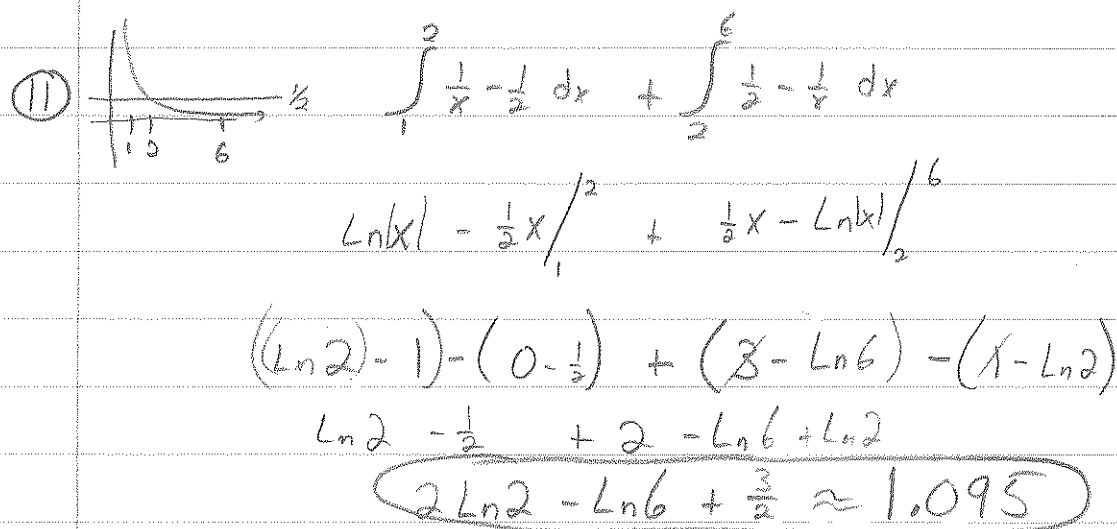 11 1/2 1 2 6 ∫₁² 1/x - 1/2 dx + ∫₂⁶ 1/2 - 1/x dx
Ln|x| - 1/2 x /₁² + 1/2 x - Ln|x| /₂⁶
((Ln 2) - 1) - (0 - 1/2) + (3 - Ln 6) - (1 - Ln 2)
Ln 2 - 1/2 + 2 - Ln 6 + Ln 2
2 Ln 2 - Ln 6 + 3/2 ≈ 1.095